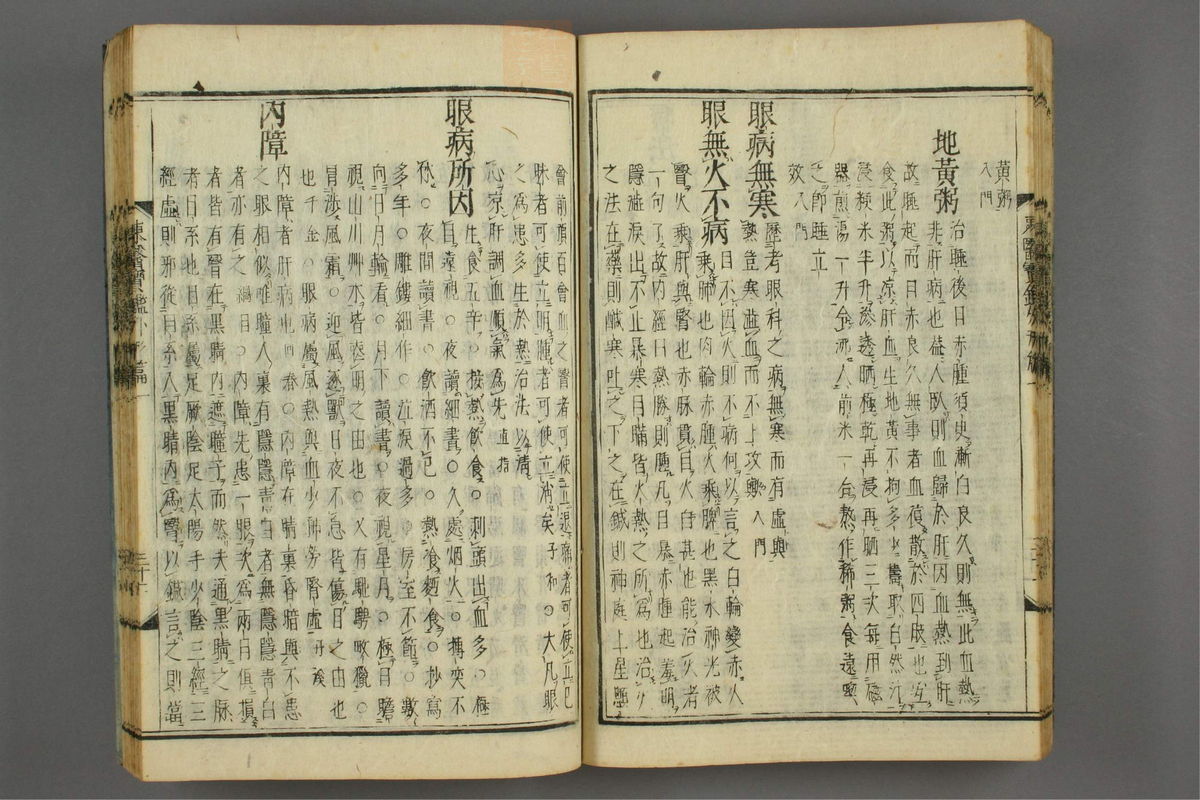 黃粥
入門
地黃粥
治睡後目赤腫須臾漸白良久則無此血熱
非肝病也盖人臥則血歸於肝因血熱到肝
故睡起而目赤良久無事者血復散於四肢也安
食此粥以凉肝血生地黃不拘多少擣取自然汁
浸粳米半升滲透晒極乾再浸再晒三次每用磁
器煎湯一升令沸入前米一合熟作稀粥食遠喫
之卽睡立
效入門
眼病無寒
歷考眼科之病無寒而有虛與
熱豈寒澁血而不上攻歟入門
眼無火不病
目不因火則不病何以言之白輪變赤火
乘肺也肉輪赤腫火乘脾也黑水神光被
瞖火乘肝與腎也赤脉貫目火自甚也能治火者
一句了故內經曰熱勝則腫凡目暴赤腫起羞明
隱澁淚出不止暴寒目瞞皆火熱之所爲也治火
之法在藥則鹹寒吐之下之在鍼則神庭上星顖
會前頂百會血之瞖者可使立退痛者可使立已
昧者可使立明腫者可使立消矣子和○大凡眼
之爲患多生於熱治法以淸
心凉肝調血順氣爲先直指
眼病所因
生食五辛○接熱飮食○刺頭出血多○極
目遠視○夜讀細書○久處烟火○博奕不
休○夜間讀書○飮酒不已○熱食麵食○抄寫
多年○雕鏤細作○泣淚過多○房室不節○數
向日月輪看○月下讀書○夜視星月○極目瞻
視山川艸木皆喪明之由也○又有馳騁畋獵○
冒涉風霜○迎風逐獸日夜不息皆傷目之由也
也千金○眼病屬風熱與血少神勞腎虛丹溪
內障
內障者肝病也回春○內障在睛裏昏暗與不患
之眼相似唯瞳人裏有隱隱靑白者無隱隱靑白
者亦有之綱目○內障先患一眼次爲兩目俱損
者皆有瞖在黑睛內遮瞳子而然夫通黑睛之脉
者目系也目系屬足厥陰足太陽手少陰三經三
經虛則邪從目系入黑睛內爲瞖以鍼言之則當
東醫寶鑑外形篇一